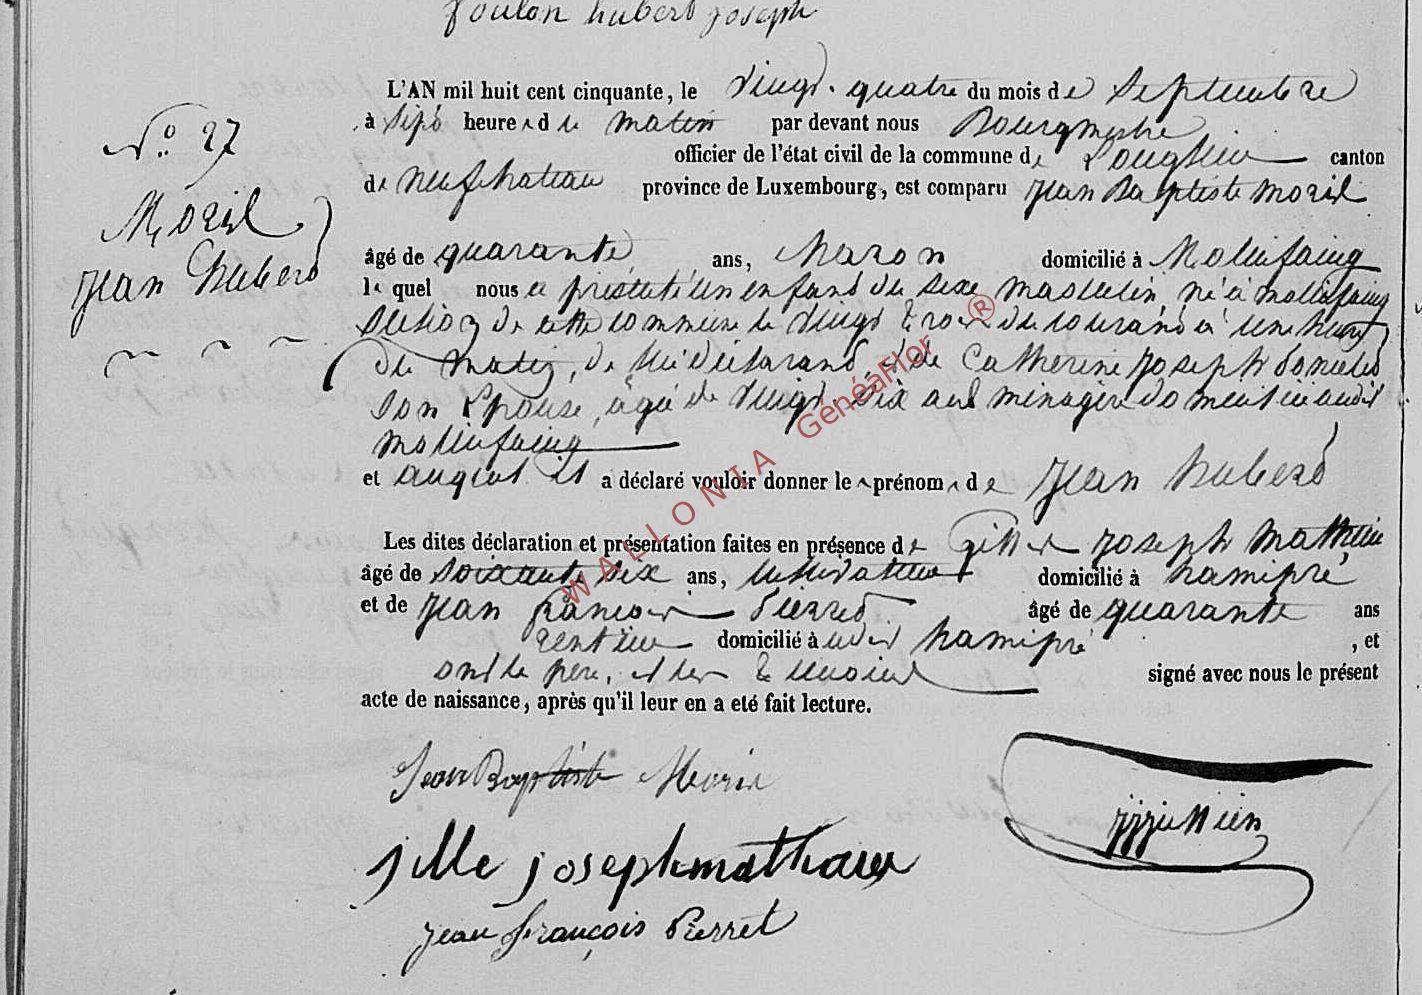 foulon hubert joseph
L'AN mil huit cent cinquante, le vingt-quatre du mois de Septembre
N.° 27
à Sept heures du matin par devant nous Bourgmestre
officier de l'état civil de la commune de Longlier canton
de neufchateau province de Luxembourg, est comparu Jean Baptiste moris
Moris
Jean hubert
âgé de quarante ans, domicilié à Molinfaing
le quel nous a présenté un enfant du sexe masculin, né à molinfaing
Section de cette commune le vingt trois du courant à une heure
du matin, de lui déclarant, et de Catherine Joseph
son Epouse, agée de vingt six ans ménagère domiciliée audit
molinfaing
et auquel il a déclaré vouloir donner les prénoms de Jean hubert
Les dites déclaration et présentation faites en présence de Gille joseph mathieu
âgé de soixante six ans, cultivateur domicilié à hamipré
et de Jean francois Pierret âgé de quarante ans
rentier domicilié à udit hamipré, et
ont le père, et les témoins signé avec nous le présent
acte de naissance, après qu'il leur en a eté fait lecture.
Jean Baptiste Moris
jille joseph mathieu
jean françois Pierret
WALLONIA GenéaFlor ®